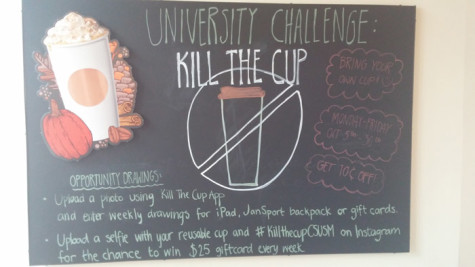 UNIVERSITY CHALLENGE:
KILL THE CUP
BRING YOUR
OWN CUP!
MONDAY-FRIDAY
OCT.
GET 10¢ OFF!
OPPORTUNITY DRAWINGS:
• Upload a photo using Kill The Cup App
and enter weekly drawings for iPad, JanSport backpack or gift cards.
• Upload a selfie with your reusable cup and #KillthecupCSUSM on Instagram
for the chance to win $25 giftcard every week.